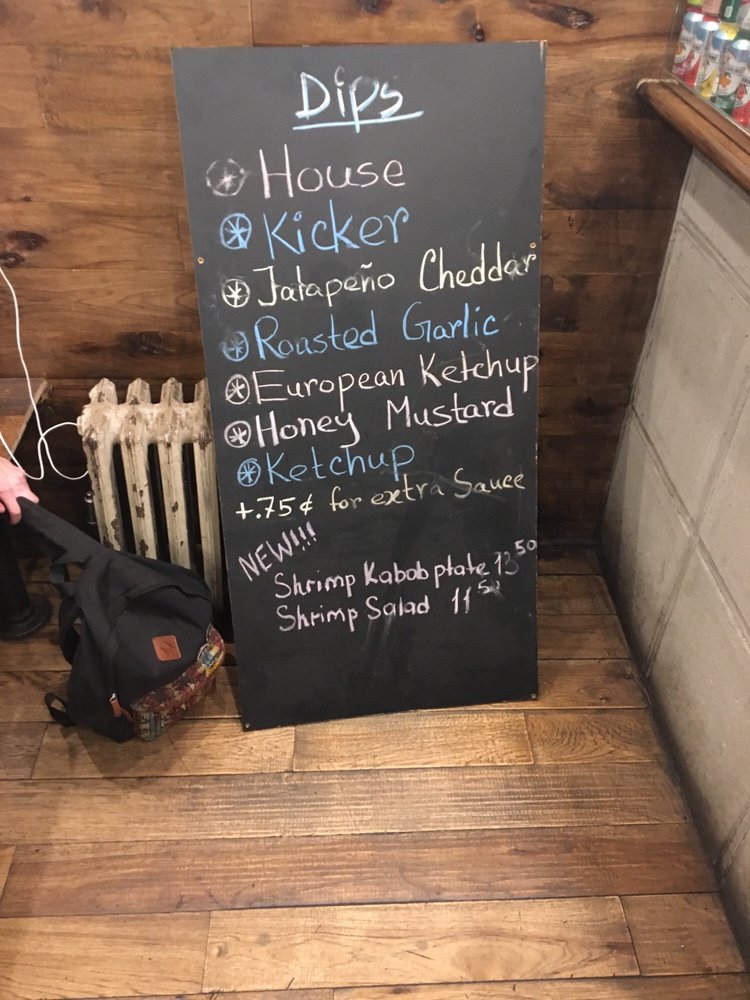 Dips
House
Kicker
Jalapeño Cheddar
Roasted Garlic
European Ketchup
Honey Mustard
Ketchup
+.75¢ for extra Sauce
NEW!!!
Shrimp Kabob plate 13 50
Shrimp Salad 11 50